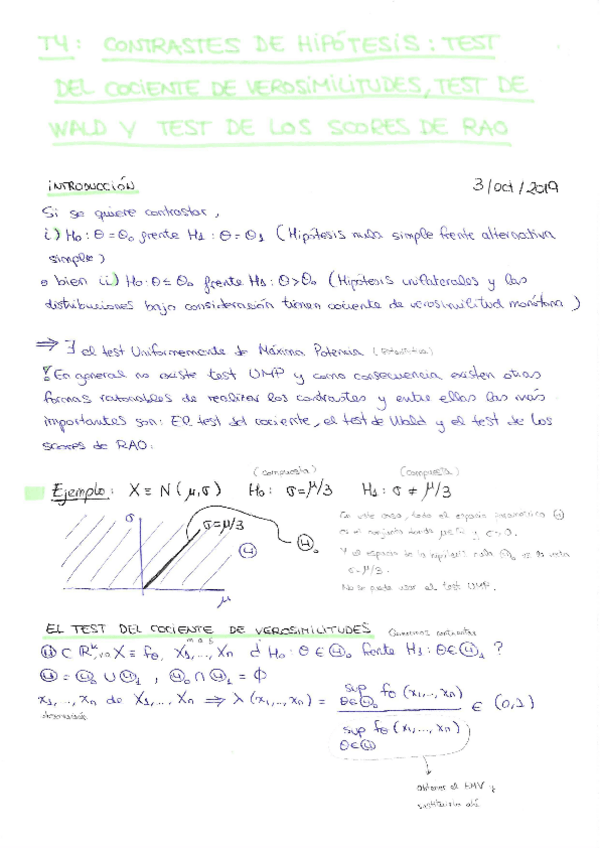 T4: CONTRASTES DE HIPÓTESIS: TEST
DEL COCIENTE DE VEROSIMILITUDES, TEST DE
WALD Y TEST DE LOS SCORES DE RAO
INTRODUCCIÓN 3/oct/2019
Si se quiere contrastar,
i) H₀: Θ=Θ₀ frente H₁: Θ=Θ₁ (Hipótesis nula simple frente alternativa
simple)
o bien ii) H₀: Θ≤Θ₀ frente H₁: Θ>Θ₀ (Hipótesis unilaterales y las
distribuciones bajo consideración tienen cociente de verosimilitud monótona)
⇒ ∃ el test Uniformemente de Máxima Potencia
! En general no existe test UMP y como consecuencia existen otras
formas razonables de realizar los contrastes y entre ellas las más
importantes son: El test del cociente, el test de Wald y el test de los
scores de RAO.
(compuesta) (compuesta)
Ejemplo: X ≡ N(μ,σ) H₀: σ=μ/3 H₁: σ ≠ μ/3
σ σ=μ/3 Ⓗ Ⓗ₀
μ
En este caso, todo el espacio paramétrico Ⓗ
es el conjunto donde μ∈ℝ y σ>0.
Y el espacio de la hipótesis nula Ⓗ₀ es la recta
σ=μ/3.
No se puede usar el test UMP.
EL TEST DEL COCIENTE DE VEROSIMILITUDES Queremos contrastar
m.a.s
Ⓗ ⊂ ℝᵏ, X ≡ f_Θ, X₁,..., Xₙ ¿H₀: Θ∈Ⓗ₀ frente H₁: Θ∈Ⓗ₁ ?
Ⓗ = Ⓗ₀ ∪ Ⓗ₁ , Ⓗ₀ ∩ Ⓗ₁ = Φ
x₁,..., xₙ de X₁,..., Xₙ ⇒ λ(x₁,...,xₙ) = sup Θ∈Ⓗ₀ f_Θ(x₁,...,xₙ) ∈ (0,1)
sup Θ∈Ⓗ f_Θ(x₁,...,xₙ)
obtener el EMV y
sustituirlo ahí